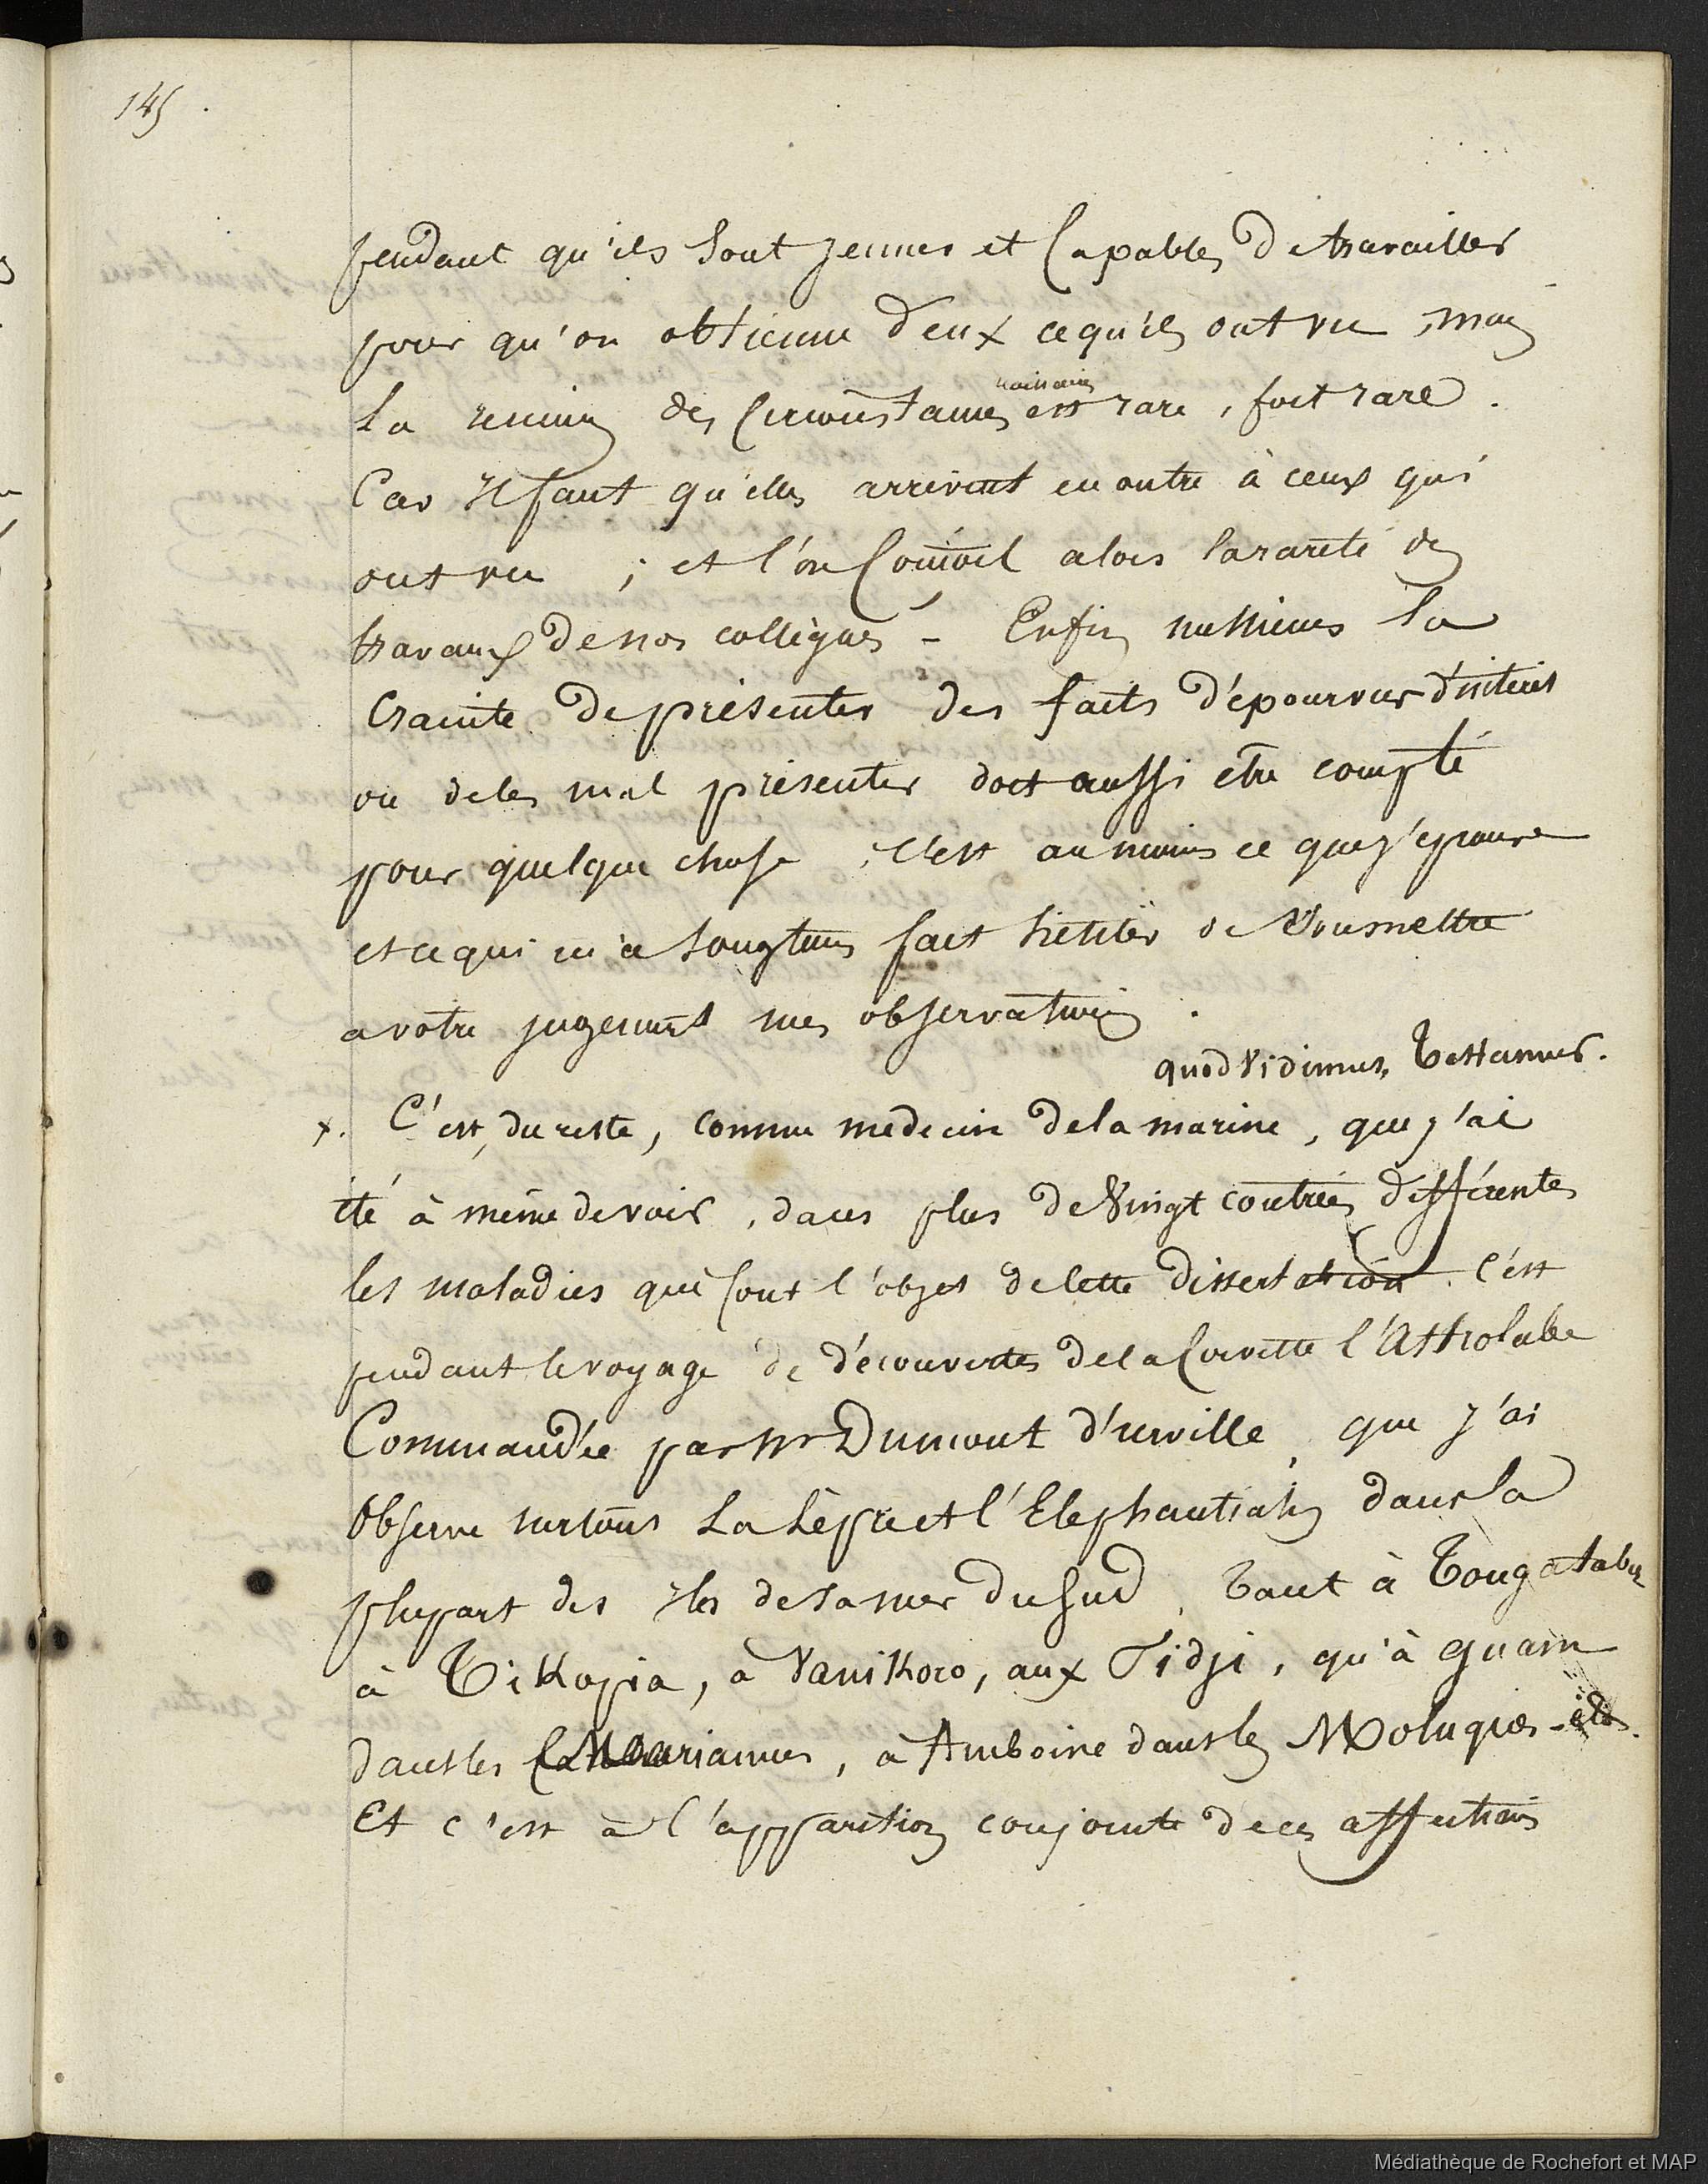 145.
pendant qu'ils sont jeunes et capables de travailler
pour qu'on obtienne d'eux ce qu'ils ont vu, mais
la reunion des circonstances
est rare, fort rare.
Car il faut qu'elles arrivent en outre à ceux qui
ont vu ; et l'on conçoit alors la rareté des
travaux de nos collègues - Enfin messieurs la
crainte de présenter des faits dépourvus d'intérêt
ou de les mal présenter doit aussi etre compté
pour quelque chose, c'est au moins ce que j'eprouve
et ce qui m'a longtems fait hésiter de soumettre
a votre jugement mes observations.
quod vidimus, testamur.
x. C'est, du reste, comme medecin de la marine, que j'ai
été à même de voir, dans plus de vingt contrées différentes
les maladies qui font l'objet de cette dissertation. C'est
pendant le voyage de découvertes de la Corvette l'Astrolabe
Commandée par Mr Dumont d'urville, que j'ai
observé surtout la Lèpre et l'Elephantiasis dans la
plupart des iles de la mer du sud, tant à Tongatabu
à Tikopia, à Vanikoro, aux Fidji, qu'à guam
dans les Mariannes, à Amboine dans les Moluques - etc.
Et c'est à l'apparition conjointe de ces affections
Médiathèque de Rochefort et MAP